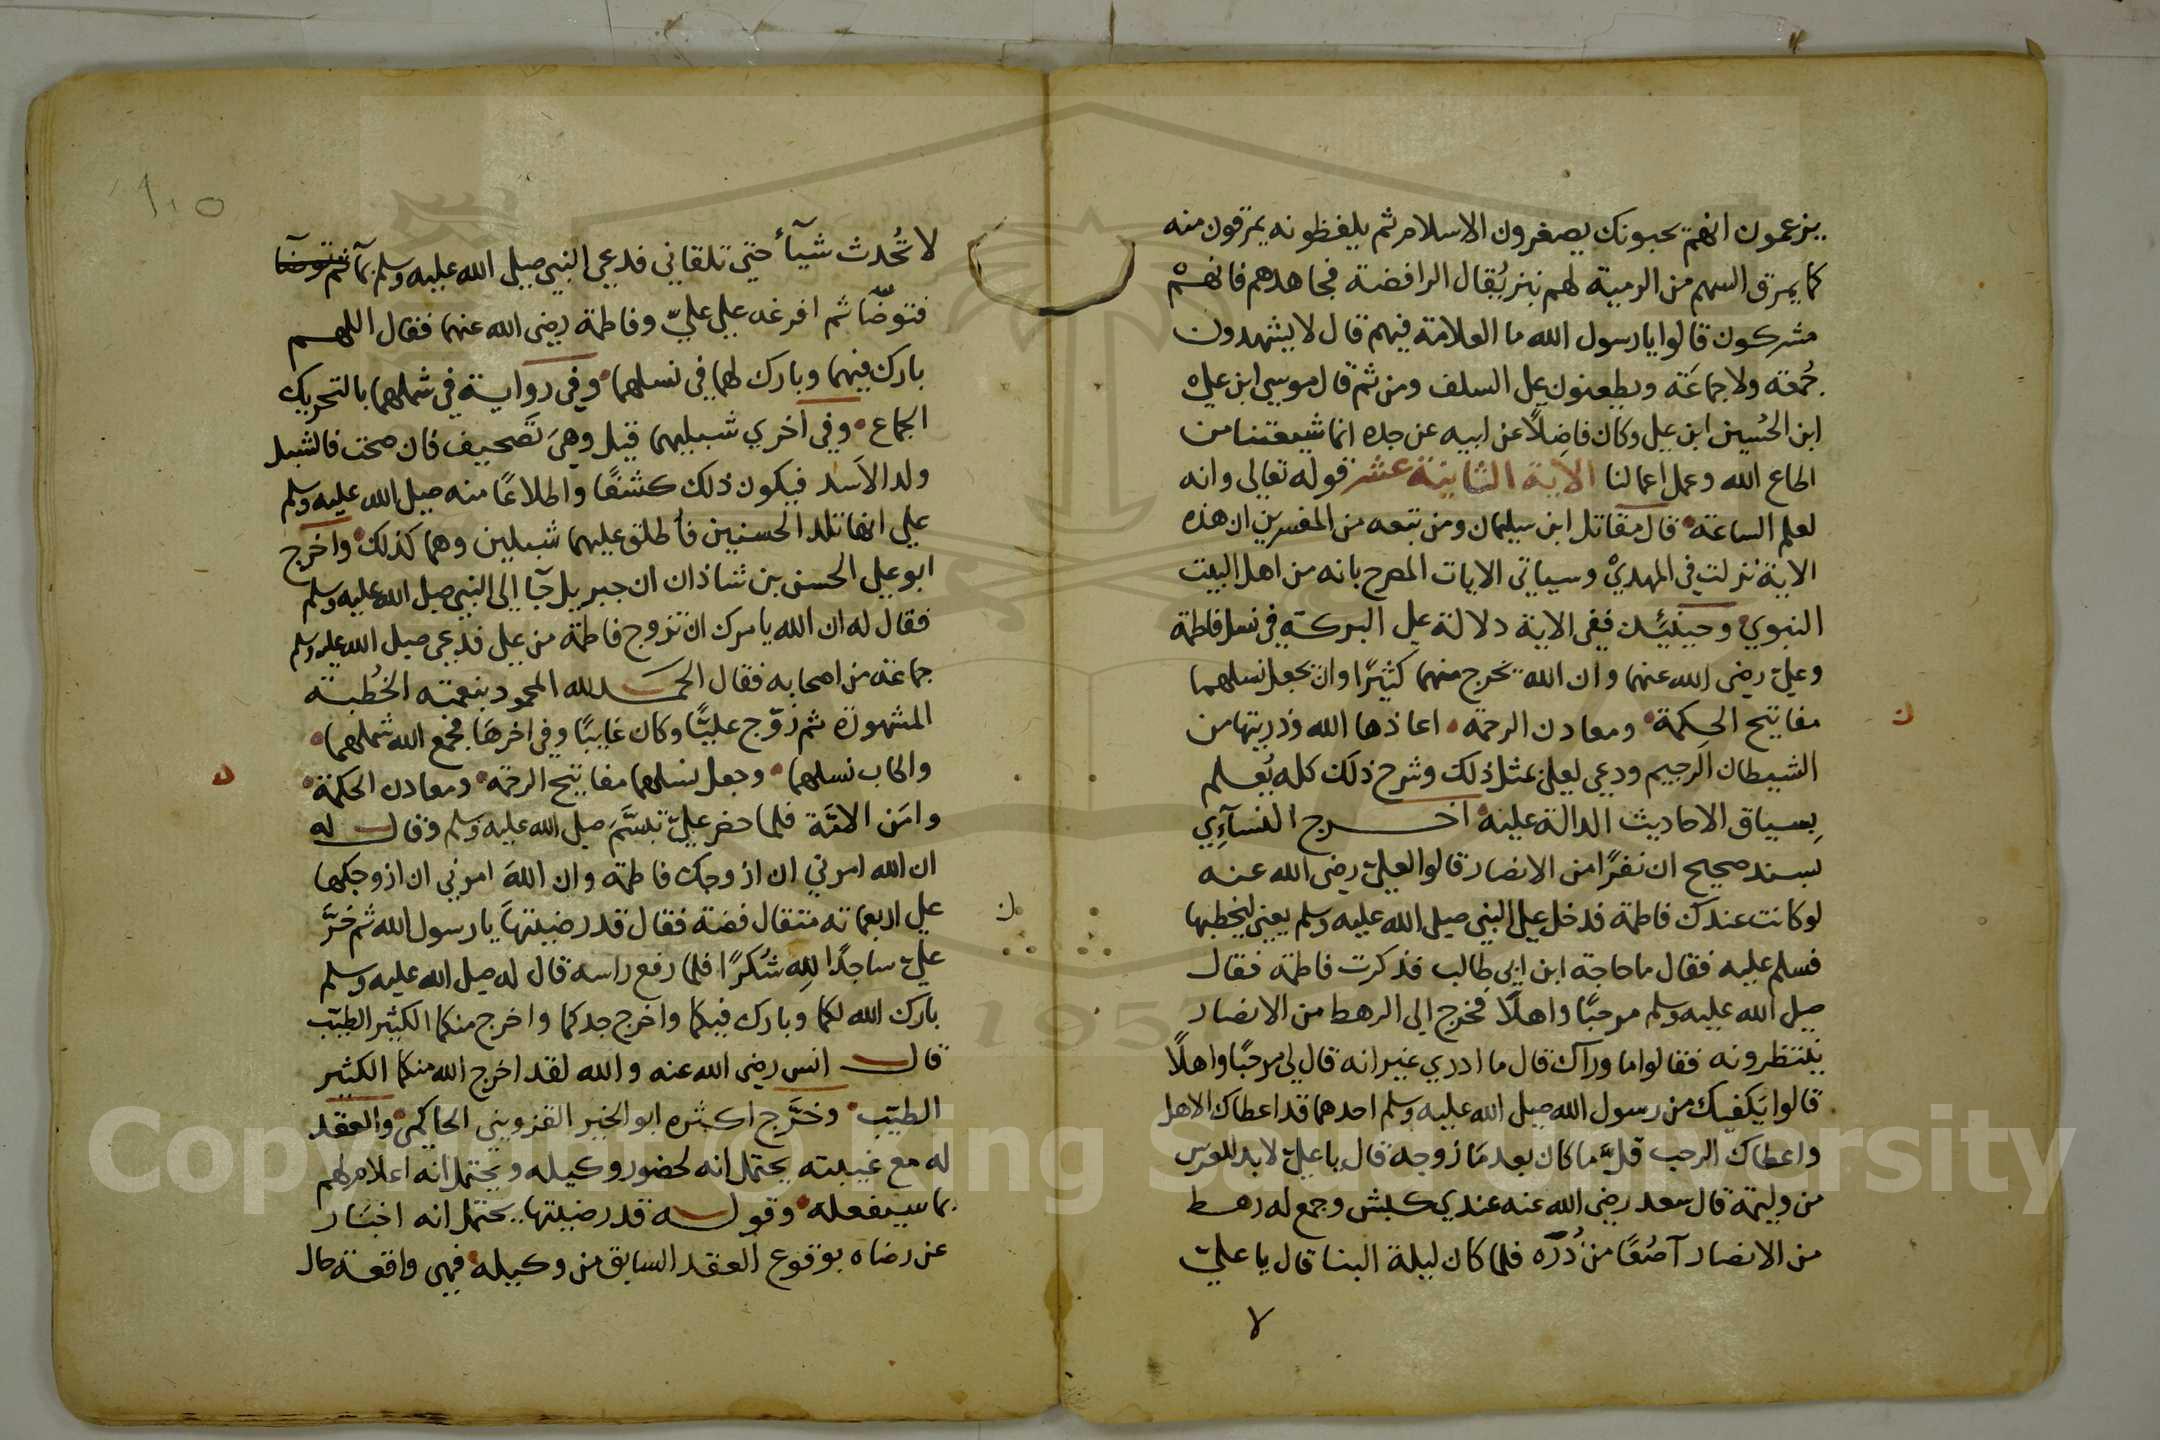 يزعمون انهم يحبونك يصغرون الاسلام ثم يلفظونه يمرقون منه
كما يمرق السهم من الرمية لهم نبز يُقال الرافضة فجاهدهم فانهم
مشركون قالوا يا رسول الله ما العلامة فيهم قال لا يشهدون
جُمعة ولا جماعَة ويطعنون على السلف ومن ثم قال موسى ابن علي
ابن الحُسين ابن علي وكان فاضِلاً عن ابيه عن جده انما شيعتنا من
اطاع الله وعمل اعمالنا الاية الثانية عشر قوله تعالى وانه
لعلم الساعة قال مقاتل ابن سليمان ومن تبعه من المفسرين ان هذه
الاية نزلت في المهدي وسياتي الايات المصرح بانه من اهل البيت
النبوي وحينئذ ففي الاية دلالة على البركة في نسل فاطمة
وعلي رضى الله عنهما وان الله يخرج منهما كثيرًا وان يجعل نسلهما
مفاتيح الحكمة ومعادن الرحمة اعاذها الله وذريتها من
الشيطان الرجيم ودعى لعلي بمثل ذلك وشرح ذلك كله يُعلم
بِسياق الاحاديث الدالة عليه اخرج النسآءِي
بسند صحيح ان نفرًا من الانصار قالوا لعلي رضى الله عنه
لو كانت عندك فاطمة فدخل على النبي صلى الله عليه وسلم يعني ليخطبها
فسلم عليه فقال ما حاجة ابن ابي طالب فذكرت فاطمة فقال
صلى الله عليه وسلم مرحبًا واهلاً فخرج الى الرهط من الانصار
ينتظرونه فقالوا ما وراك قال ما ادري غير انه قال لي مرحبًا واهلاً
قالوا يكفيك من رسول الله صلى الله عليه وسلم احدهما قد اعطاك الاهل
واعطاك الرحب فلما كان بعد ما زوجه قال يا علي لا بد للعرس
من وليمة قال سعد رضى الله عنه عندي كبش وجمع له رهط
من الانصار آصُعًا من ذُرّه فلما كان ليلة البنا قال يا علي
٧
١٠٥
لا تُحدث شيآء حتى تلقاني فدعى النبي صلى الله عليه وسلم بمآ ثم توضا
فتوضّا ثم افرغه على عليّ وفاطمة رضى الله عنهما فقال اللهم
بارك فيهما وبارك لهما في نسلهما وفي رواية في شملهما بالتحريك
الجماع وفي اخري شبليهما قيل وهيَ تَصحيف فان صحت فالشبل
ولد الاَسد فيكون ذلك كشفًا واطلاعًا منه صلى الله عليه وسلم
على انها تلد الحسنين فأطلق عليهما شبلين وهما كذلك واخرج
ابو علي الحسن بن شاذان ان جبريل جآ الى النبي صلى الله عليه وسلم
فقال له ان الله يامرك ان تزوج فاطمة من علي فدعى صلى الله عليه وسلم
جماعة من اصحابه فقال الحمد لله المحمود بنعمته الخُطبة
المشهورة ثم زوّج عليًّا وكان غايبًا وفي اخرهَا فجمع الله شملهما
واطاب نسلهما وجعل نسلهما مفاتيح الرحمة ومعادن الحكمة
وامَن الامّة فلما حضر علي تبسَّمَ صلى الله عليه وسلم وقال له
ان الله امرني ان ازوجك فاطمة وان اللهَ امرني ان ازوجكها
على اربعماية مثقال فضة فقال قد رضيتها يا رسول الله ثم خرَّ
علي ساجدًا للهِ شُكرًا فلما رفع راسه قال له صلى الله عليه وسلم
بارك الله لكما وبارك فيكما واخرج جدكما واخرج منكما الكثير الطيّب
قال انس رضى الله عنه والله لقد اخرج الله منكما الكثير
الطيّب وخرَّج اكثره ابو الخير القزويني الحاكمي والعقد
له مع غيبته يحتمل انه لحضور وكيله ويحتمل انه اعلام لهم
بما سيفعله وقوله قد رضيتها يحتمل انه اخبَار
عن رضاه بوقوع العقد السابق من وكيله فهى واقعة حال
1957
Copyright © King Saud University